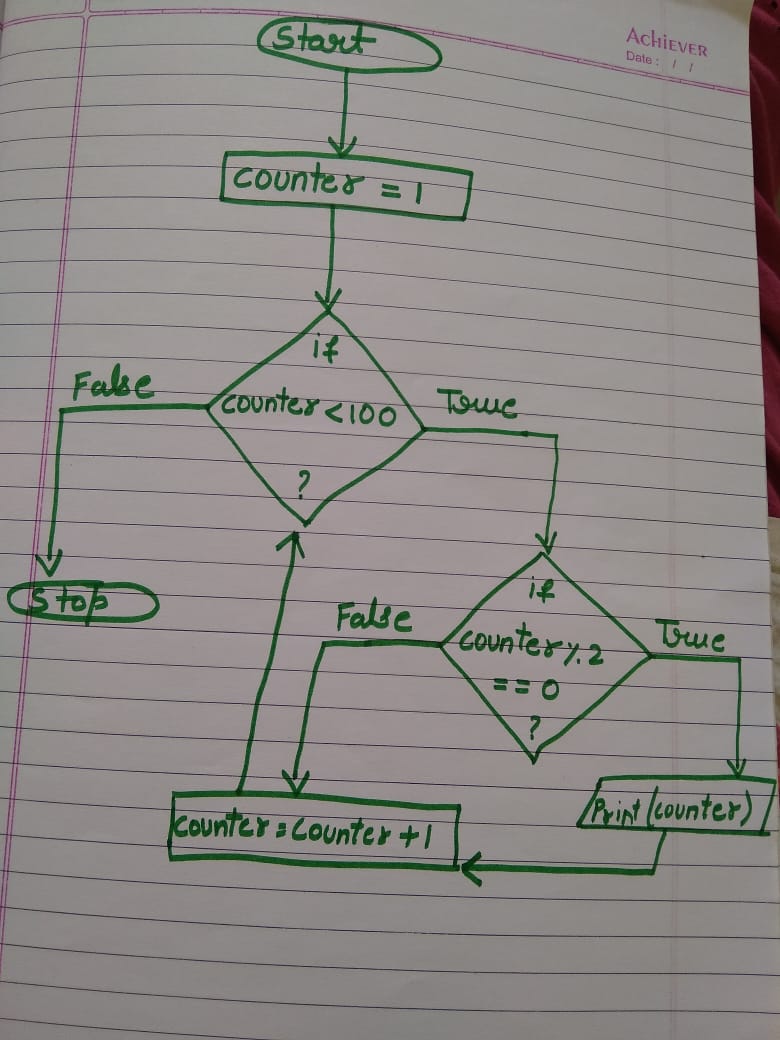 Start
ACHIEVER
Date: / /
counter = 1
if
counter < 100
?
False
True
Stop
if
counter % 2
== 0
?
False
True
Print (counter)
counter = counter + 1